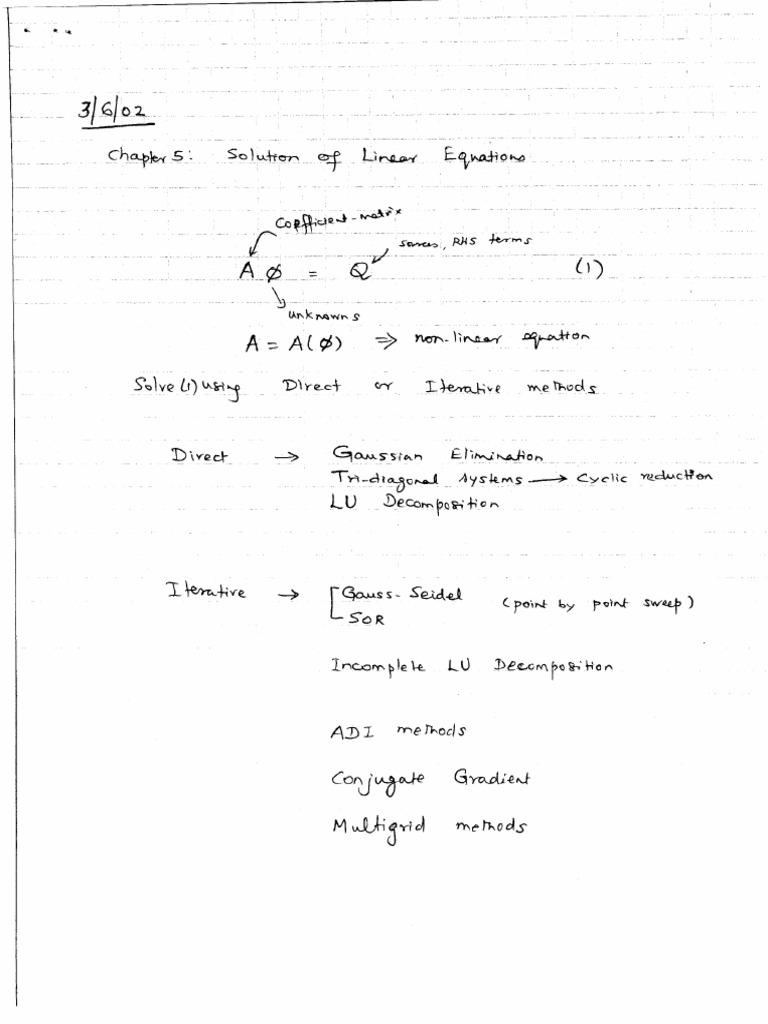 3/6/02
Chapter 5: Solution of Linear Equations
Coefficient-matrix
sources, RHS terms
A ϕ = Q (1)
unknowns
A = A(ϕ) ⇒ non-linear equation
Solve (1) using Direct or Iterative methods
Direct → Gaussian Elimination
Tri-diagonal systems → Cyclic reduction
LU Decomposition
Iterative → Gauss-Seidel (point by point sweep)
SOR
Incomplete LU Decomposition
ADI methods
Conjugate Gradient
Multigrid methods